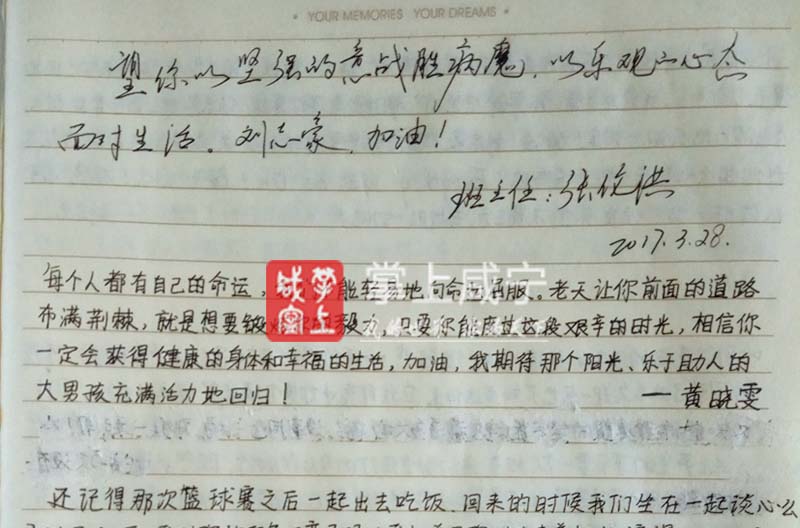 YOUR MEMORIES YOUR DREAMS
望你以坚强的意战胜病魔,以乐观的心态
面对生活。刘志豪,加油!
班主任:张俊洪
2017.3.28.
每个人都有自己的命运,能轻易地向命运屈服。老天让你前面的道路
布满荆棘,就是想要锻炼你的毅力,只要你能度过这段艰辛的时光,相信你
一定会获得健康的身体和幸福的生活,加油,我期待那个阳光、乐于助人的
大男孩充满活力地回归!
——黄晓雯
还记得那次篮球赛之后一起出去吃饭,回来的时候我们坐在一起谈心么
掌上咸宁